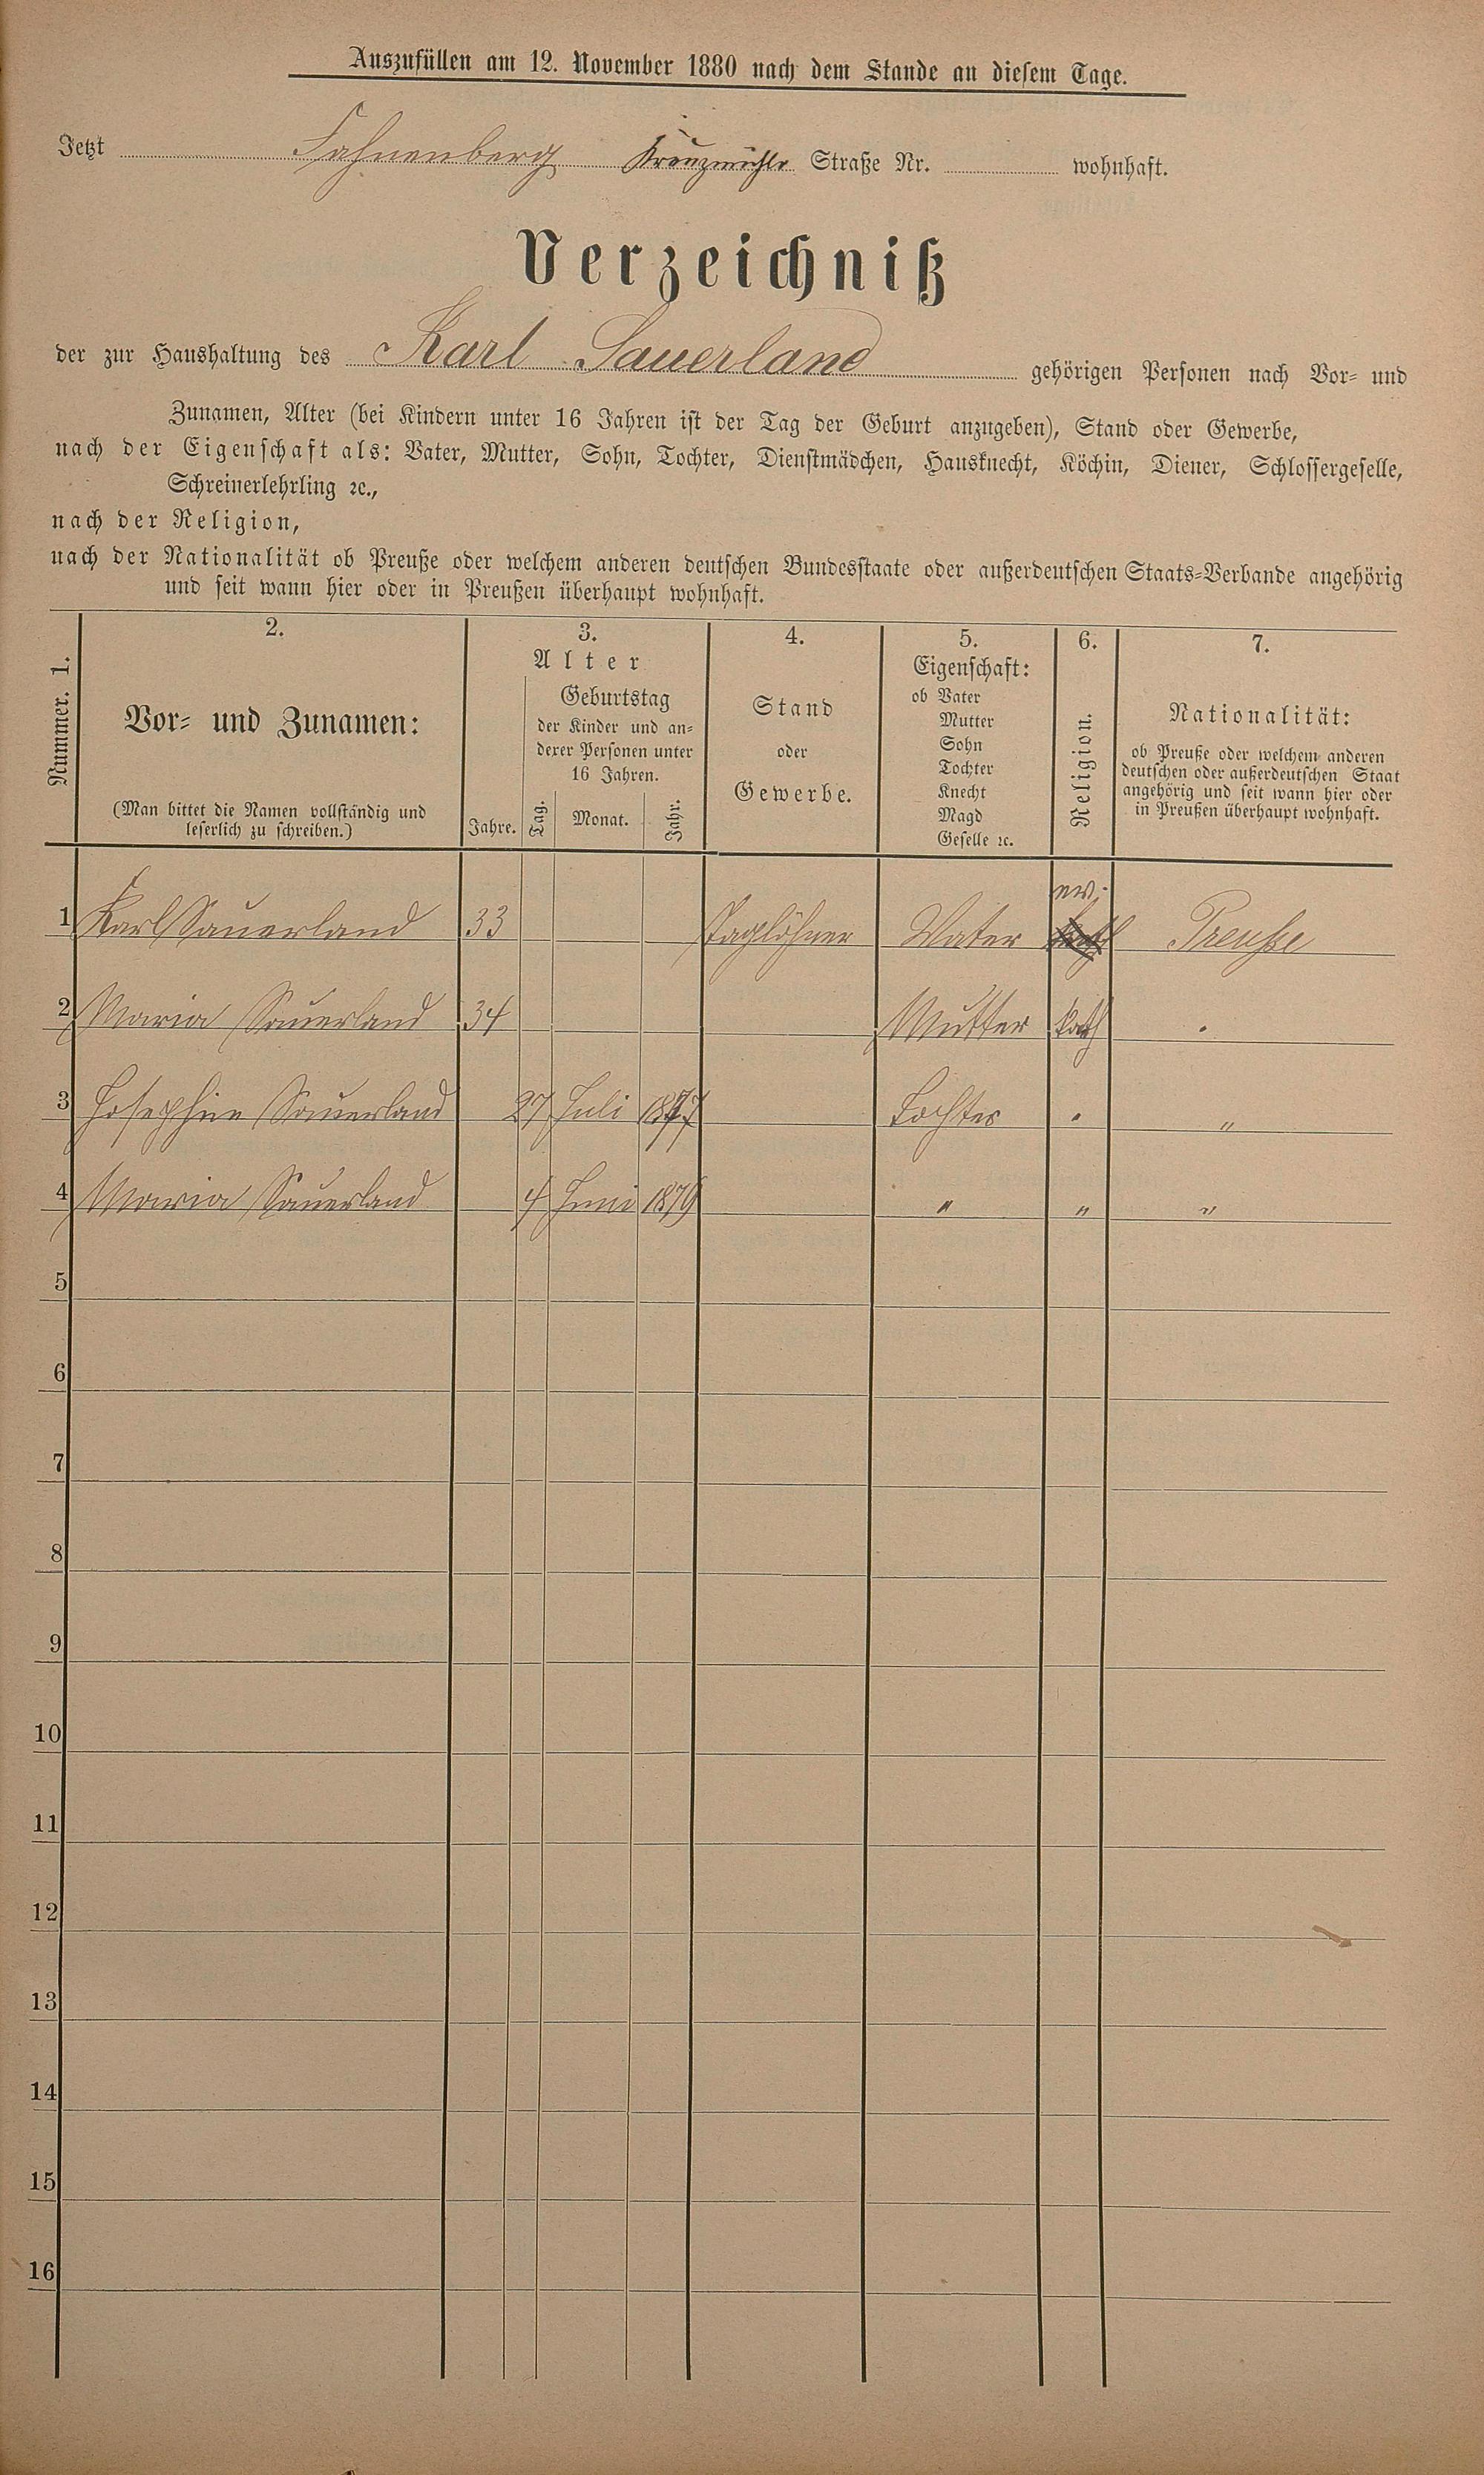 Auszufüllen am 12. November 1880 nach dem Stande an diesem Tage.
Jetzt Fahnenberg Kreuzmühle Straße Nr. wohnhaft.
Verzeichniß
der zur Haushaltung des Karl Sauerland gehörigen Personen nach Vor- und
Zunamen, Alter (bei Kindern unter 16 Jahren ist der Tag der Geburt anzugeben), Stand oder Gewerbe,
nach der Eigenschaft als: Vater, Mutter, Sohn, Tochter, Dienstmädchen, Hausknecht, Köchin, Diener, Schlossergeselle,
Schreinerlehrling ꝛc.,
nach der Religion,
nach der Nationalität ob Preuße oder welchem anderen deutschen Bundesstaate oder außerdeutschen Staats-Verbande angehörig
und seit wann hier oder in Preußen überhaupt wohnhaft.
Nummer. 1.
2.
Vor- und Zunamen:
(Man bittet die Namen vollständig und
leserlich zu schreiben.)
3.
Alter
Jahre.
Geburtstag
der Kinder und an-
derer Personen unter
16 Jahren.
Tag.
Monat.
Jahr.
4.
Stand
oder
Gewerbe.
5.
Eigenschaft:
ob Vater
Mutter
Sohn
Tochter
Knecht
Magd
Geselle ꝛc.
6.
Religion.
7.
Nationalität:
ob Preuße oder welchem anderen
deutschen oder außerdeutschen Staat
angehörig und seit wann hier oder
in Preußen überhaupt wohnhaft.
1 Karl Sauerland 33 Taglöhner Vater ev. Preuße
2 Maria Sauerland 34 Mutter kath "
3 Josephine Sauerland 27 Juli 1877 Tochter " "
4 Maria Sauerland 4 Juni 1879 " " "
5
6
7
8
9
10
11
12
13
14
15
16